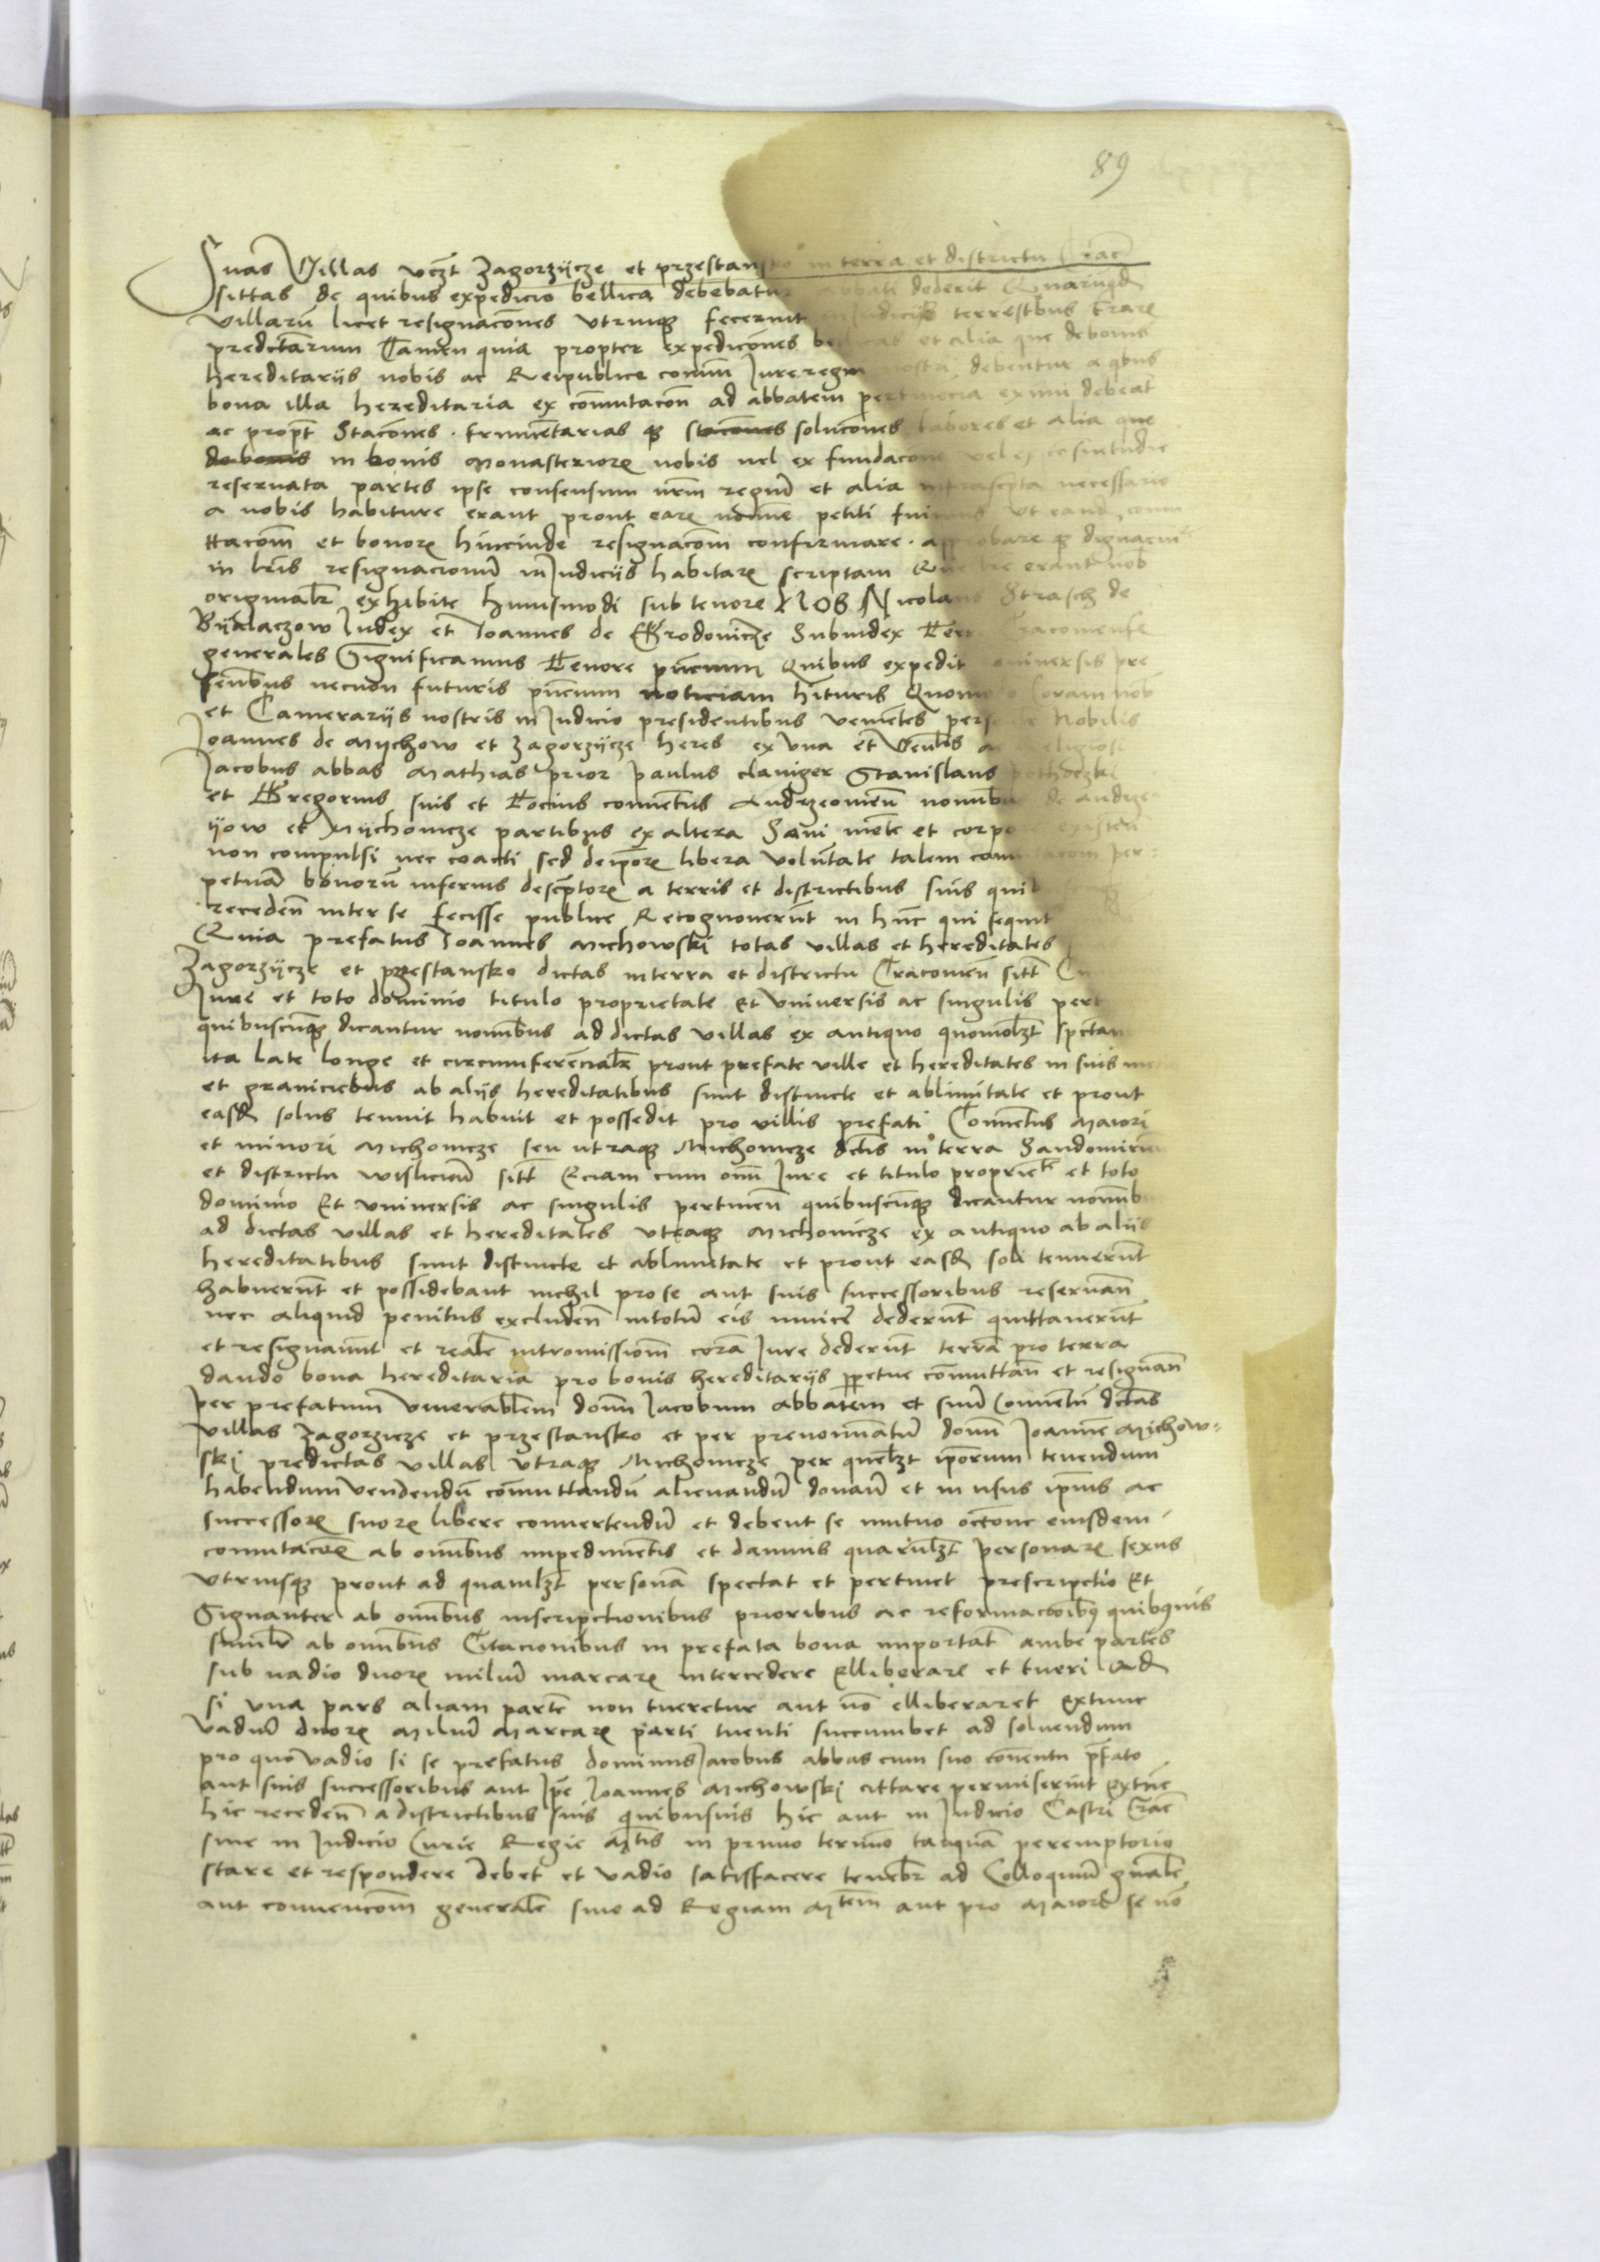 89
Suas Villas vczt Zagorzycze et przestansko in terra et districtu Crac
sittas de quibus expedicio bellica debebatur abbati dederit Quarumqd
villaru licet resignacones vtrimqz fecerint in Judicijs terrestribus terrarz
predictarum Tamen quia propter expedicones bellicas et alia que de bonis
hereditarijs nobis ac Reipublice comuni Jure regni nostri debentur a qbus
bona illa hereditaria ex comutacone ad abbatem pertinencia eximi debeat
ac propt Stacones frumentarias qz stacones solucones labores et alia que
de bonis in bonis Monasteriorz nobis vel ex fundacone vel ex cosuetudie
reservata partes ipse consensum nrm regiu et alia infrascripta necessario
a nobis habiture erant prout earz nomine petiti fuimus vt eand comu
ttacom et bonorz hincinde resignacom confirmare approbare qz dignaremur
in lris resignacionu in Judicijs habitarz scriptam Que lre erant nob
originalr exhibite huiusmodi sub tenore Nos Nicolaus Strasch de
Byalaczow Judex et Joannes de Grodowicze Subiudex Terre Cracouiense
generales Significamus Tenore pncium Quibus expedit vniversis pre
sentibus necnon futuris pncium noticiam hituris Quomodo Coram nob
et Camerarijs nostris in Judicio presidentibus venietes personalr Nobilis
Joannes de Mychow et Zagorzycze heres ex vna et Venlis ac Religiosi
Jacobus abbas Mathias prior paulus claviger Stanislaus
et Gregorius suis et Tocius conventus Andrzeouien nominibus de andrze
yow et Mychowicze partibus ex altera Sani mete et corpore existen
non compulsi nec coacti sed deiporz libera voluntate talem comutacom per
petua bonoru inferius descptorz a terris et districtibus suis quibus
receden inter se fecisse publice Recognoverut in huc qui sequit
Quia prefatus Joannes Michowski totas villas et hereditates
Zagorzycze et przestansko dictas in terra et districtu Cracouien sitt
Jure et toto dominio titulo proprietate Et vniversis ac singulis pert
quibuscuqz dicantur nominibus ad dictas villas ex antiquo quomolzt spectan
ita late longe et circumferencialr prout prefate ville et hereditates in suis metis
et graniciebus ab alijs hereditatibus sunt distincte et ablimitate et prout
easd solus tenuit habuit et possedit pro villis prefati Conventus Maiori
et minori Michowicze seu utraqz Michowicze dictis in terra Sandomirien
et districtu wislicien sitt Eciam cum omni Jure et titulo proprietat et toto
dominio Et vniversis ac singulis pertinen quibuscuqz dicantur nominibus
ad dictas villas et hereditates vtraqz Michowicze ex antiquo ab aliis
hereditatibus sunt distincte et ablimitate et prout easd soli tenuerut
habuerut et possidebant nichil pro se aut suis successoribus reservan
nec aliquid penitus excluden in totu eis inuice dederut quittaverut
et resignaverut et reale intromissiom cora Jure dederut terra pro terra
dando bona hereditaria pro bonis hereditarijs perpetue comuttan et resignan
per prefatum Venerabilem donu Jacobum abbatem et suu Conventu dictas
villas Zagorzicze et przestansko et per prenominatu donu Joanne Michow-
ski predictas villas vtraqz Michowicze per quelzt iporum tenendum
habendum vendendu comuttandu alienandu donan et in usus ipius ac
successorz suorz libere convertendu et debent se mutuo occone eiusdem
comutaconis ab omibus impedimetis et damnis quarulzt personarz sexus
vtriusqz prout ad quamlzt persona spectat et pertinet prescriptio Et
Signanter ab omibus inscripctionibus prioribus ac reformaccoibz quibusuis
similr ab omibus Citacionibus in prefata bona importat ambe partes
sub vadio duorz miliu marcarz intercedere Elliberare et tueri Qd
si vna pars aliam parte non tueretur aut no elliberaret extunc
vadiu duorz Miliu Marcarz parti tuenti succumbet ad solvendum
pro quo vadio si se prefatus dominus Jacobus abbas cum suo conentu prfato
aut suis successoribus aut Ipe Joannes Michowski cittare permiserint extuc
hic receden a districtibus suis quibusuis hic aut in Judicio Castri Crac
siue in Judicio Curie Regie Mtis in primo termio tanqua peremptorio
stare et respondere debet et vadio satisfacere tenebr ad Colloquiu gnale
aut convencom generale siue ad Regiam Mtem aut pro Maiori se no